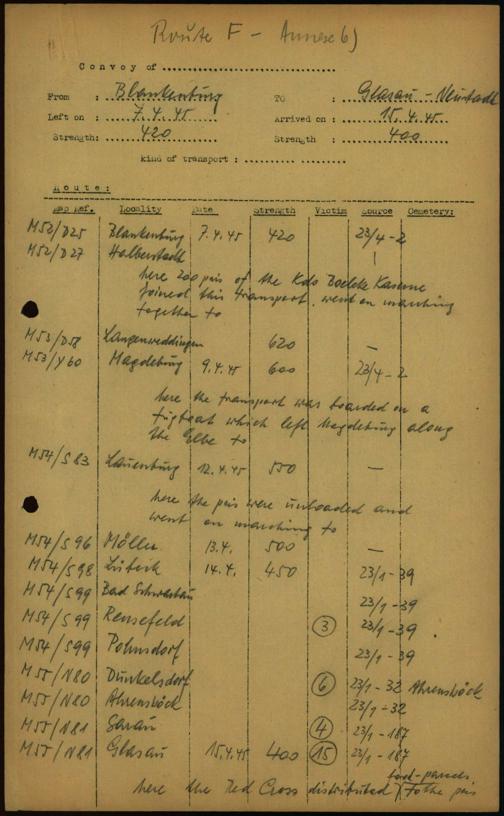 Route F - Annexe 6)
Convoy of
From : Blankenburg TO : Glasau - Neustadt
Left on : 7.4.45 Arrived on : 15.4.45
Strength: 420 Strength : 400
kind of transport :
Route:
Map Ref. Locality Date Strength Victim Source Cemetery:
M52/D25 Blankenburg 7.4.45 420 23/4-2
M52/D27 Halberstadt |
here 200 pris of the Kdo Boelcke Kaserne
joined this transport, went on marching
together to
M53/D58 Langenweddingen 620 —
M53/Y60 Magdeburg 9.4.45 600 23/4-2
here the transport was boarded on a
tugboat which left Magdeburg along
the Elbe to
M54/S83 Lauenburg 12.4.45 550 —
here the pris were unloaded and
went on marching to
M54/S96 Mölln 13.4. 500 —
M54/S98 Lübeck 14.4. 450 23/1-39
M54/S99 Bad Schwartau 23/1-39
M54/S99 Rensefeld (3) 23/1-39
M54/S99 Pohnsdorf 23/1-39
M55/N80 Dunkelsdorf (6) 23/1-32 Ahrensböck
M55/N80 Ahrensböck 23/1-32
M55/N81 Sarau (4) 23/1-187
M55/N81 Glasau 15.4.45 400 (15) 23/1-187
here the Red Cross distributed food-parcels to the pris